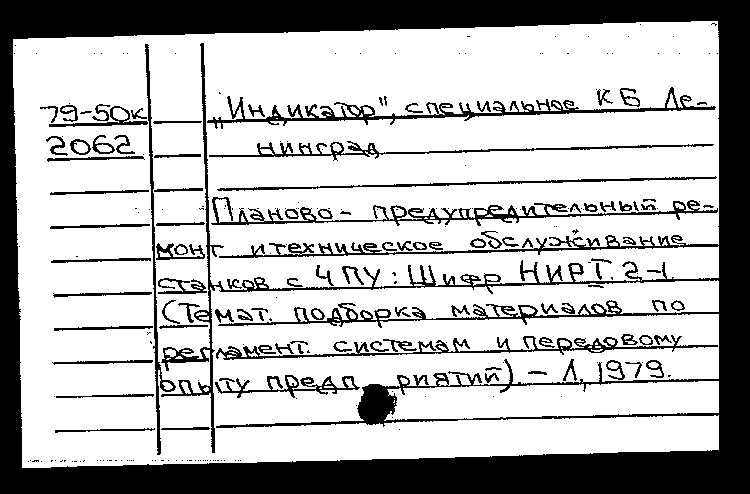 79-50к „Индикатор", специальное КБ Ле-
2062 нинград
Планово- предупредительный ре-
монт и техническое обслуживание
станков с ЧПУ: Шифр НИРТ. 2-1
(Темат. подборка материалов по
регламент. системам и передовому
опыту предп риятий) - Л, 1979.